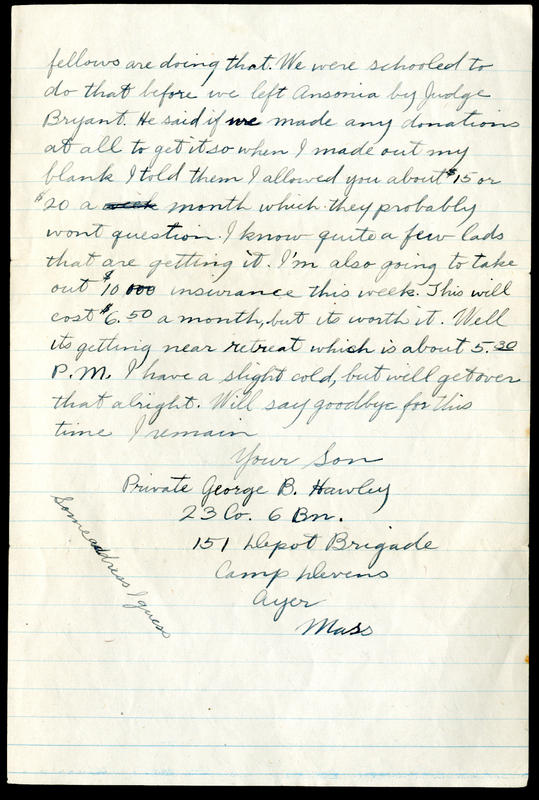 fellows are doing that. We were schooled to
do that before we left Ansonia by Judge
Bryant. He said if we made any donations
at all to get it so when I made out my
blank I told them I allowed you about $15 or
$20 a week month which they probably
wont question. I know quite a few lads
that are getting it. I'm also going to take
out $10 000 insurance this week. This will
cost $6.50 a month, but its worth it. Well
its getting near retreat which is about 5.30
P.M. I have a slight cold, but will get over
that alright. Will say goodbye for this
time I remain
Your Son
Private George B. Hawley
23 Co. 6 Bn.
151 Depot Brigade
Camp Devens
Ayer
Mass
Some address I guess